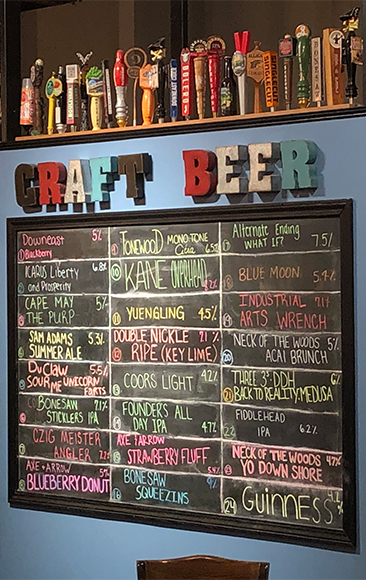 CRAFT BEER
Downeast 5%
① Blackberry
ICARUS Liberty 6.8%
and Prosperity
CAPE MAY 5%
THE PURP
SAM ADAMS 5.3%
SUMMER ALE
DUCLAW 5.5%
SOUR ME UNICORN
FARTS
BONESAW 7.1%
STICKLERS IPA
CZIG MEISTER
ANGLER 7.2%
AXE + ARROW 5%
BLUEBERRY DONUT
TONEWOOD MONO-TONE
Citra 6.5%
⑩ KANE OVERHEAD
8.2%
YUENGLING 4.5%
DOUBLE NICKLE
RIPE (KEY LIME)
COORS LIGHT 4.2%
FOUNDER'S ALL
DAY IPA 4.7%
AXE + ARROW
STRAWBERRY FLUFF
BONESAW
SQUEEZINS
Alternate Ending
WHAT IF? 7.5%
BLUE MOON 5.4%
INDUSTRIAL
ARTS WRENCH
NECK OF THE WOODS 5%
⑳ ACAI BRUNCH
THREE 3'S DDH 6%
㉑ BACK TO REALITY: MEDUSA
FIDDLEHEAD
22 IPA 6.2%
NECK OF THE WOODS 4.7%
YO DOWN SHORE
㉔ GUINNESS 4.2%